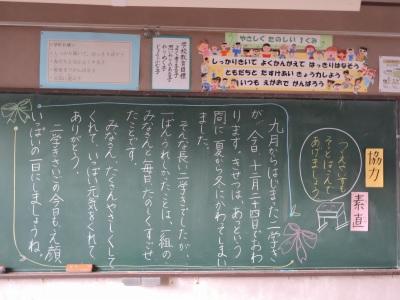 やさしく たのしい 1くみ
しっかりきいて よくかんがえて はっきりはなそう
ともだちと たすけあい きょう力しよう
いつも えがおで がんばろう
学校教育目標
協力
素直
つくえいすを
そとにはこんで
あげましょう
九月からはじまった二学き
が、今日、十二月二十四日でおわ
ります。きせつは、あっという
間に夏から冬にかわってしまい
ました。
そんな長い二学きでしたが、
一ばんうれしかったことは、一組の
みなさんと毎日たのしくすごせ
たことです。
みなさん、たくさんやさしくして
くれて、いっぱい元気をくれて
ありがとう。
二学きさいごの今日も、え顔
いっぱいの一日にしましょうね。